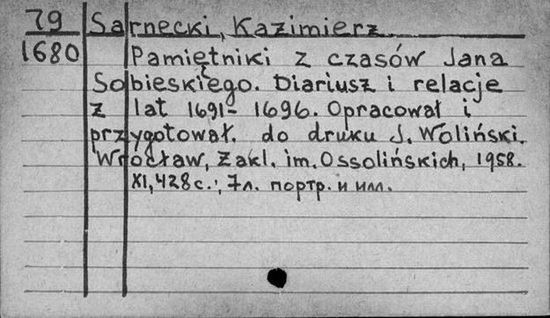 79 Sarnecki, Kazimierz
1680 Pamiętniki z czasów Jana
Sobieskiego. Diariusz i relacje
z lat 1691- 1696. Opracował i
przygotował. do druku J. Woliński.
Wrocław, Zakl. im. Ossolińskich, 1958.
XI, 428 с.; 7л. портр. и илл.